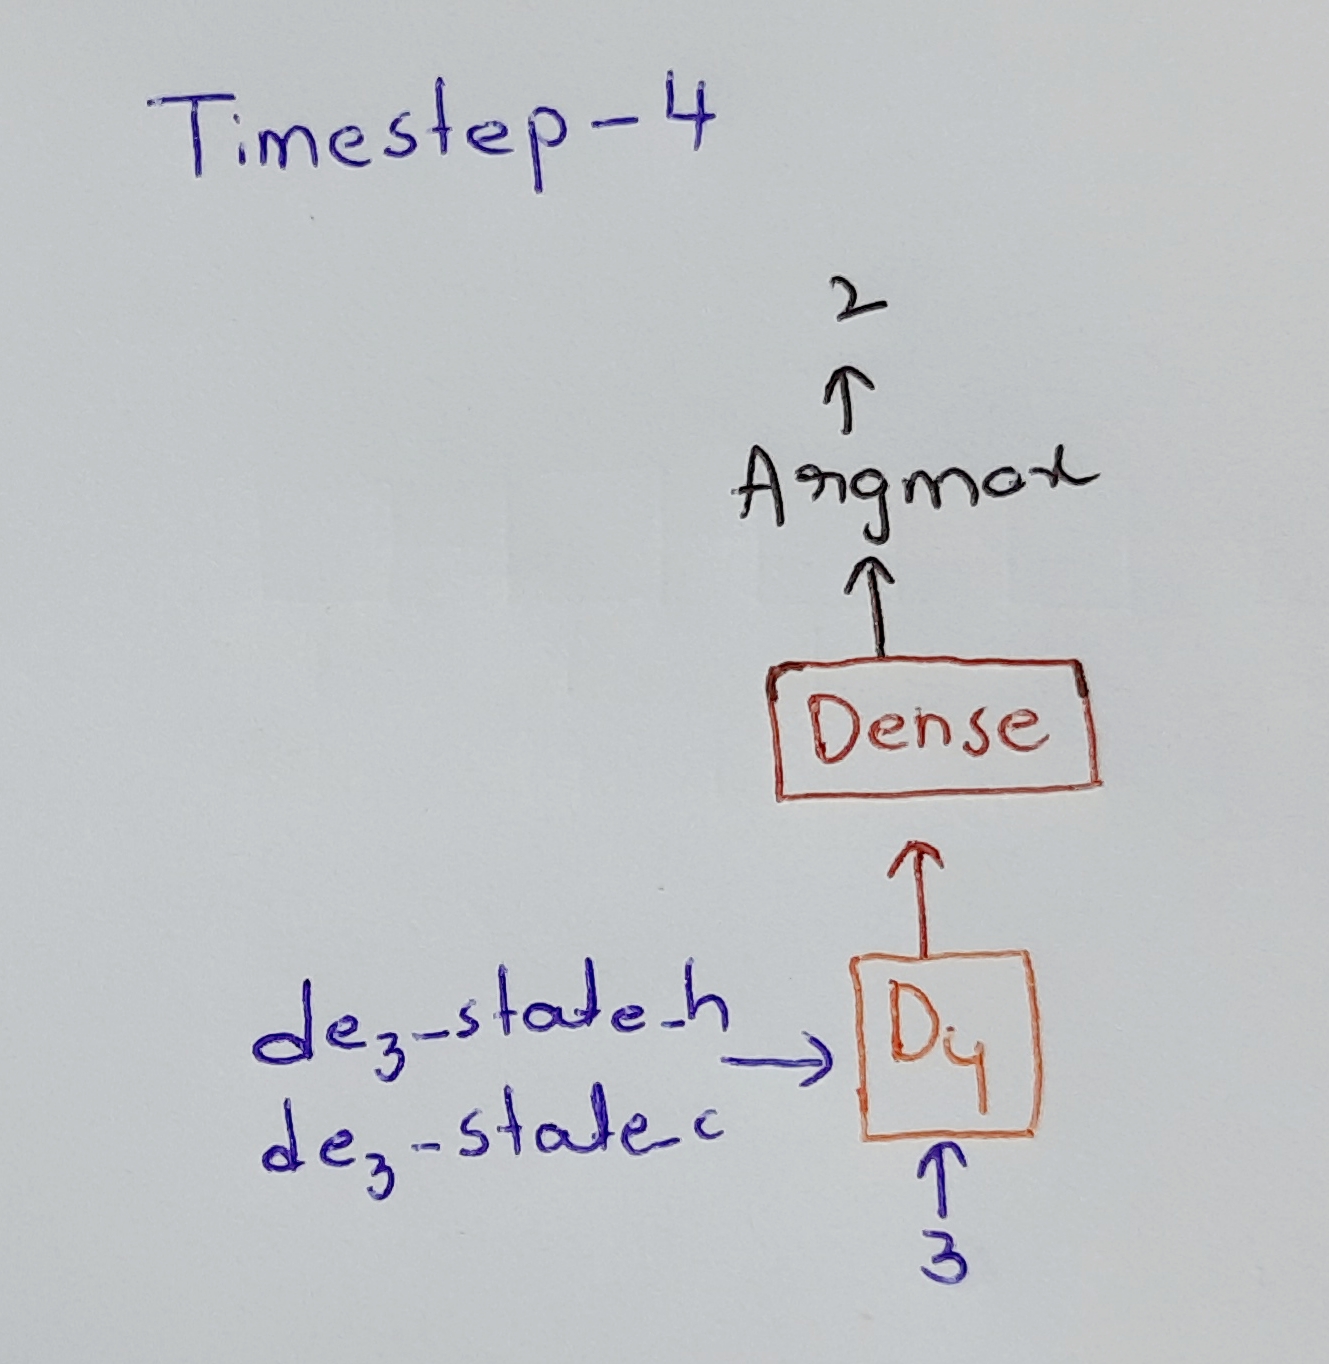 Timestep-4
2
Argmax
Dense
de3-state-h
D4
de3-state-c
3